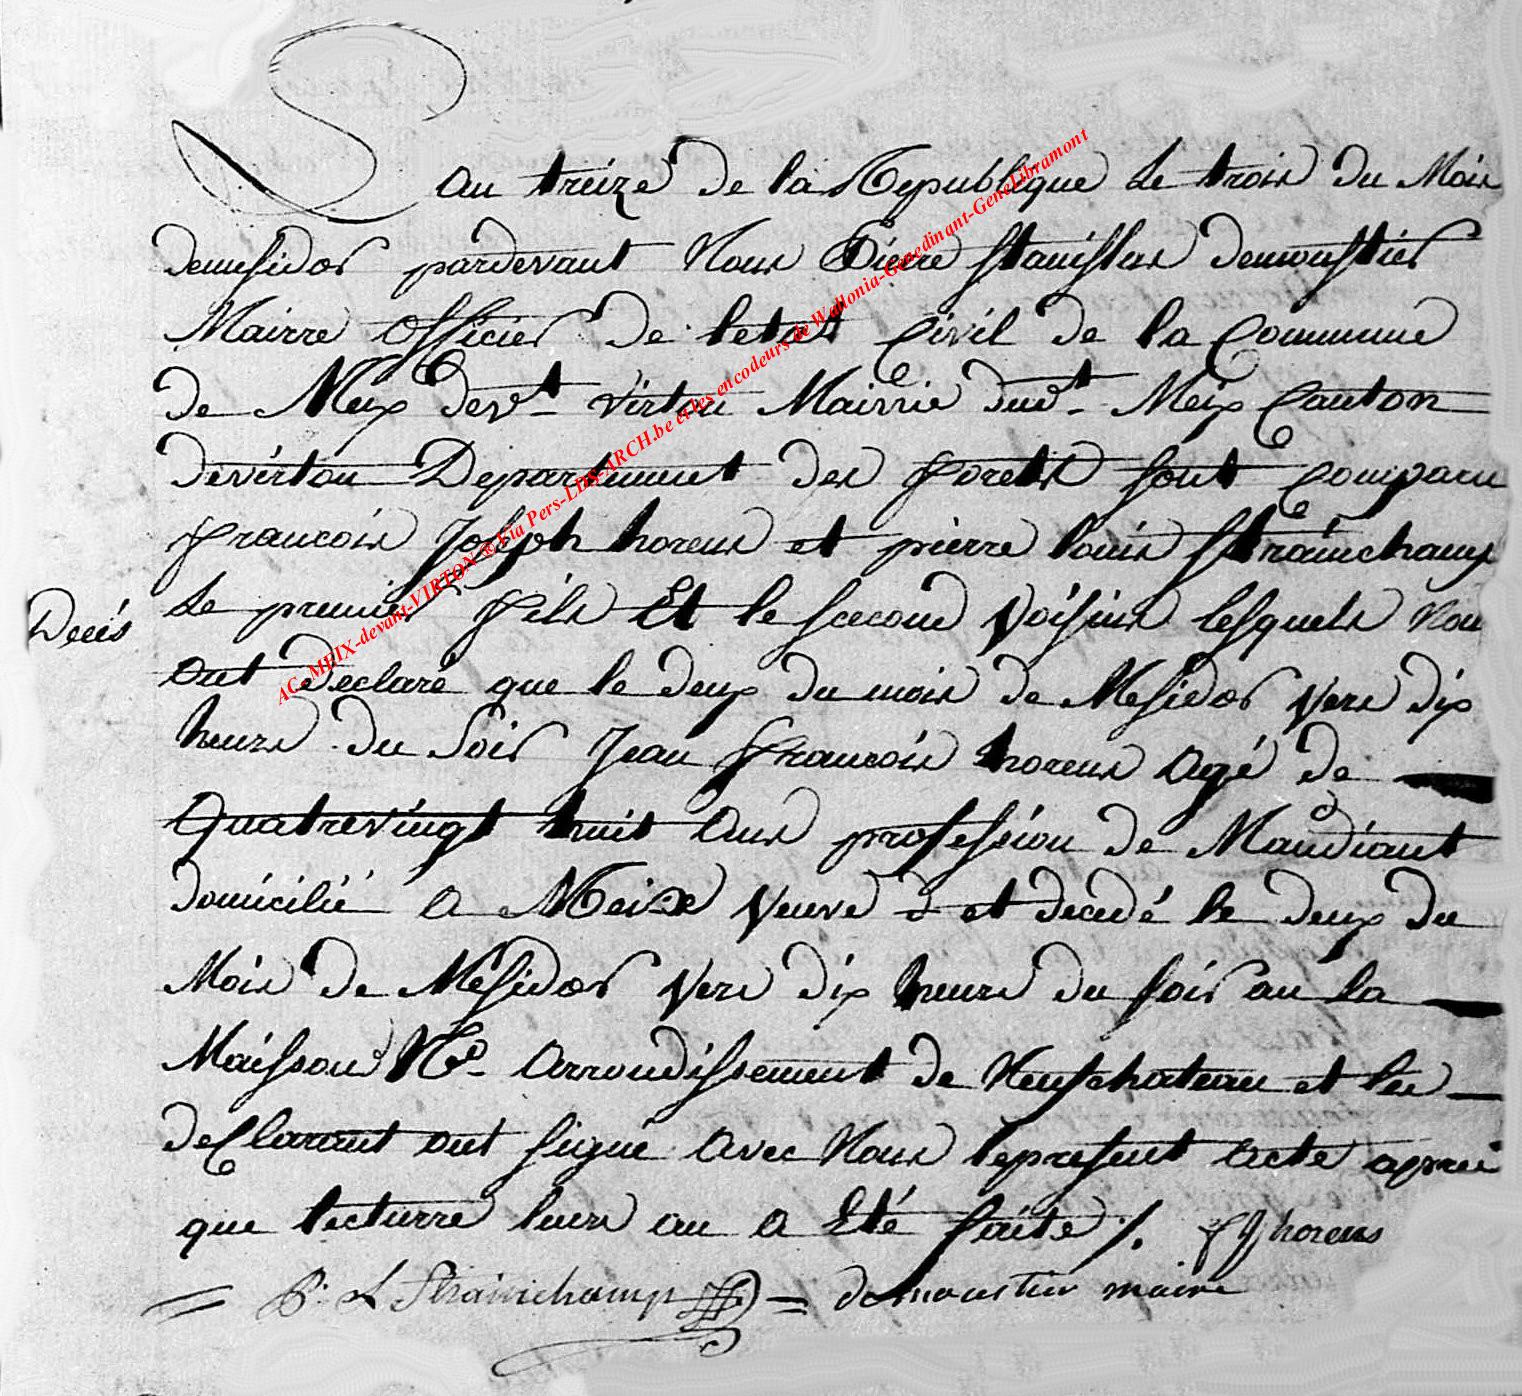 Lau treize de la Republique Le trois du Mois
demesidor pardevant Nous Pierre stanislas demoustier
Mairre officier de letat Civil de la Commune
de Meix devt virton Mairrie dudt Meix Canton
devirton Departement des forets sont comparu
francois Joseph horens et pierre louis strainchamp
Le premier fils Et le second voisins lesquels Nou
Decés
ont declaré que le deux du mois de Mesidor vers dix
heure du soir Jean francois horens agé de
Quatrevingt huit ans profession de Maudiant
domicilié a Meix veuve d et decedé le deux du
Mois de Mesidor vers dix heure du soir au la
Maisson No arrondissement de Neufchateau et les
declarant ont signé avec Nous lepresent acte apres
que lecturre leurs au a Eté faite /. f J horens
= P. L Strainchamp = demoustier maire
AC. MEIX-devant-VIRTON ® Via Pers-LDS-ARCH.be et les encodeurs de Wallonia-Genedinant-GeneLibramont